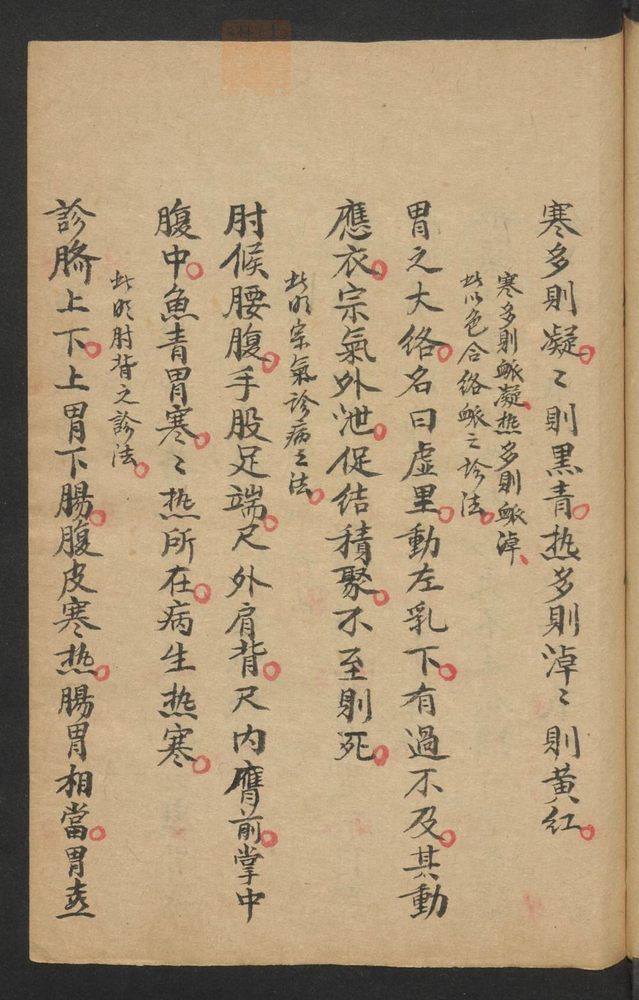 寒多則凝。〻則黒青。热多則淖〻則黄红。
寒多則脈凝、热多則脈淖、
此以色合络脈之診法。
胃之大络。名曰虚里。動左乳下。有過不及。其動
應衣。宗氣外泄。促结積聚。不至則死。
此明宗氣診病之法。
肘候腰腹。手股足端。尺外肩背。尺内膺前。掌中
腹中。魚青胃寒。〻热所在。病生热寒。
此明肘背之診法。
診臍上下。上胃下腸。腹皮寒热。腸胃相當。胃喜